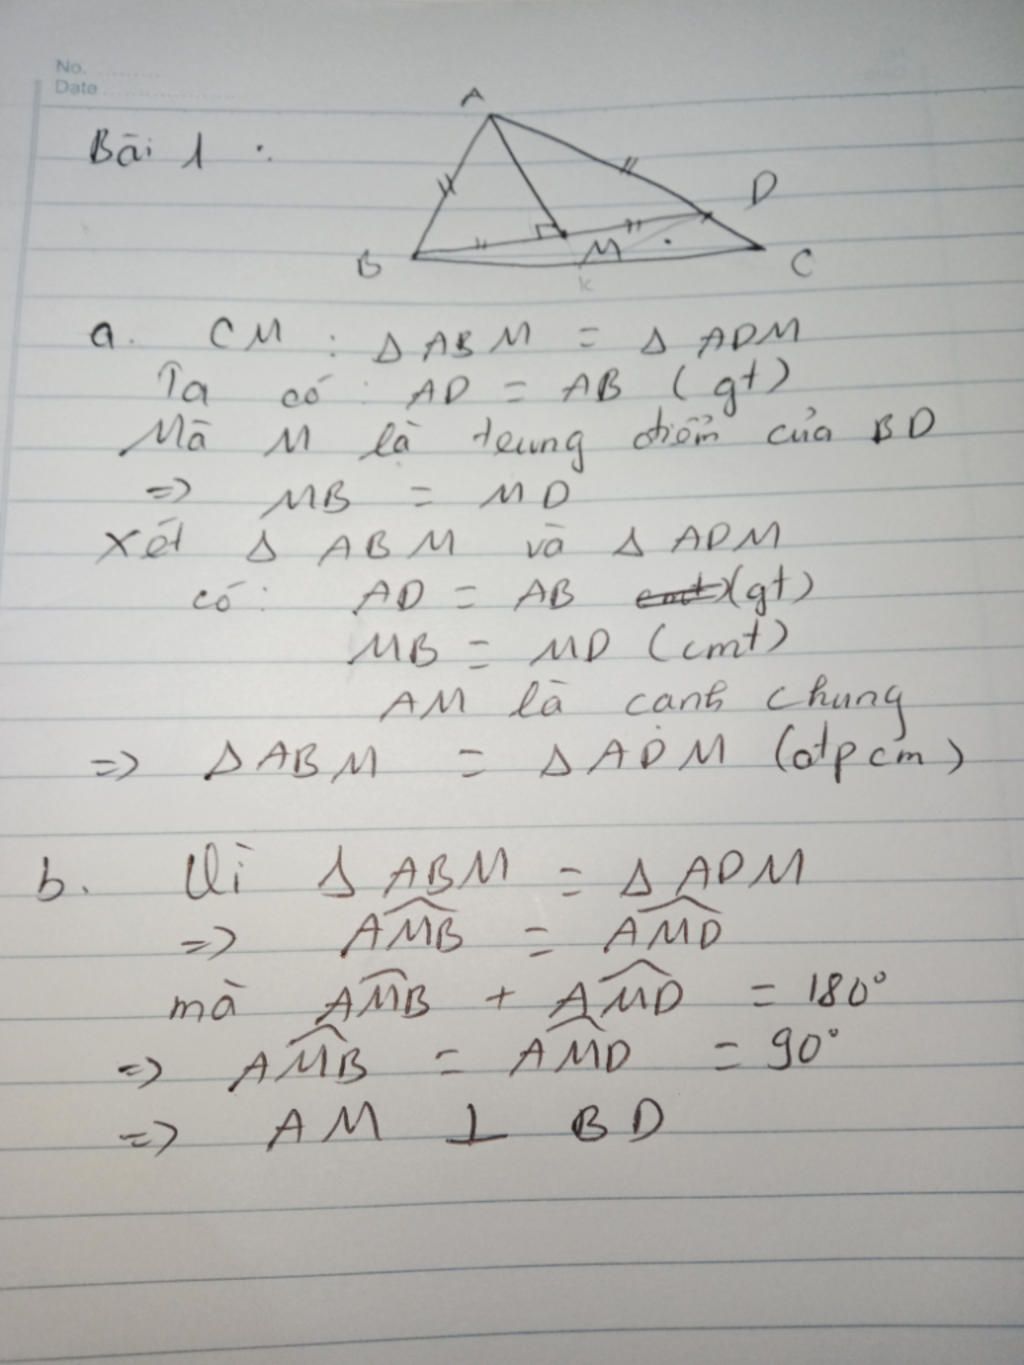 No.
Date
Bài 1 :
A
D
B
M
C
k
a. CM : Δ ABM = Δ ADM
Ta có : AD = AB (gt)
Mà M là trung điểm của BD
=> MB = MD
Xét Δ ABM và Δ ADM
có : AD = AB cmt (gt)
MB = MD (cmt)
AM là cạnh chung
=> Δ ABM = Δ ADM (đpcm)
b. Vì Δ ABM = Δ ADM
=> \widehat{AMB} = \widehat{AMD}
mà \widehat{AMB} + \widehat{AMD} = 180°
=> \widehat{AMB} = \widehat{AMD} = 90°
=> AM ⊥ BD